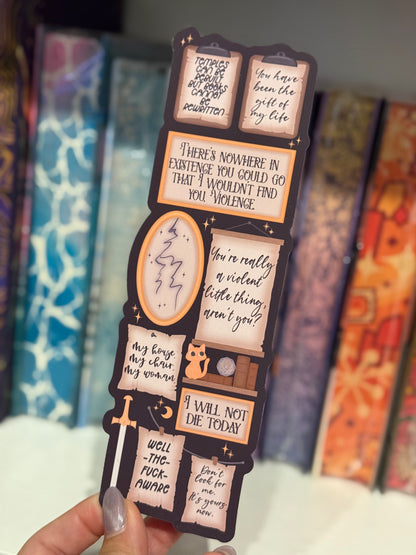 TEMPLES
CAN BE
REBUILT
BUT BOOKS
CANNOT
BE
REWRITTEN
You have
been the
gift of
my life
THERE'S NOWHERE IN
EXISTENCE YOU COULD GO
THAT I WOULDN'T FIND
YOU, VIOLENCE
You're really
a violent
little thing,
aren't you?
my house
my chair
my woman
I WILL NOT
DIE TODAY
WELL
-THE-
FUCK-
AWARE
Don't
look for
me.
It's yours
now.